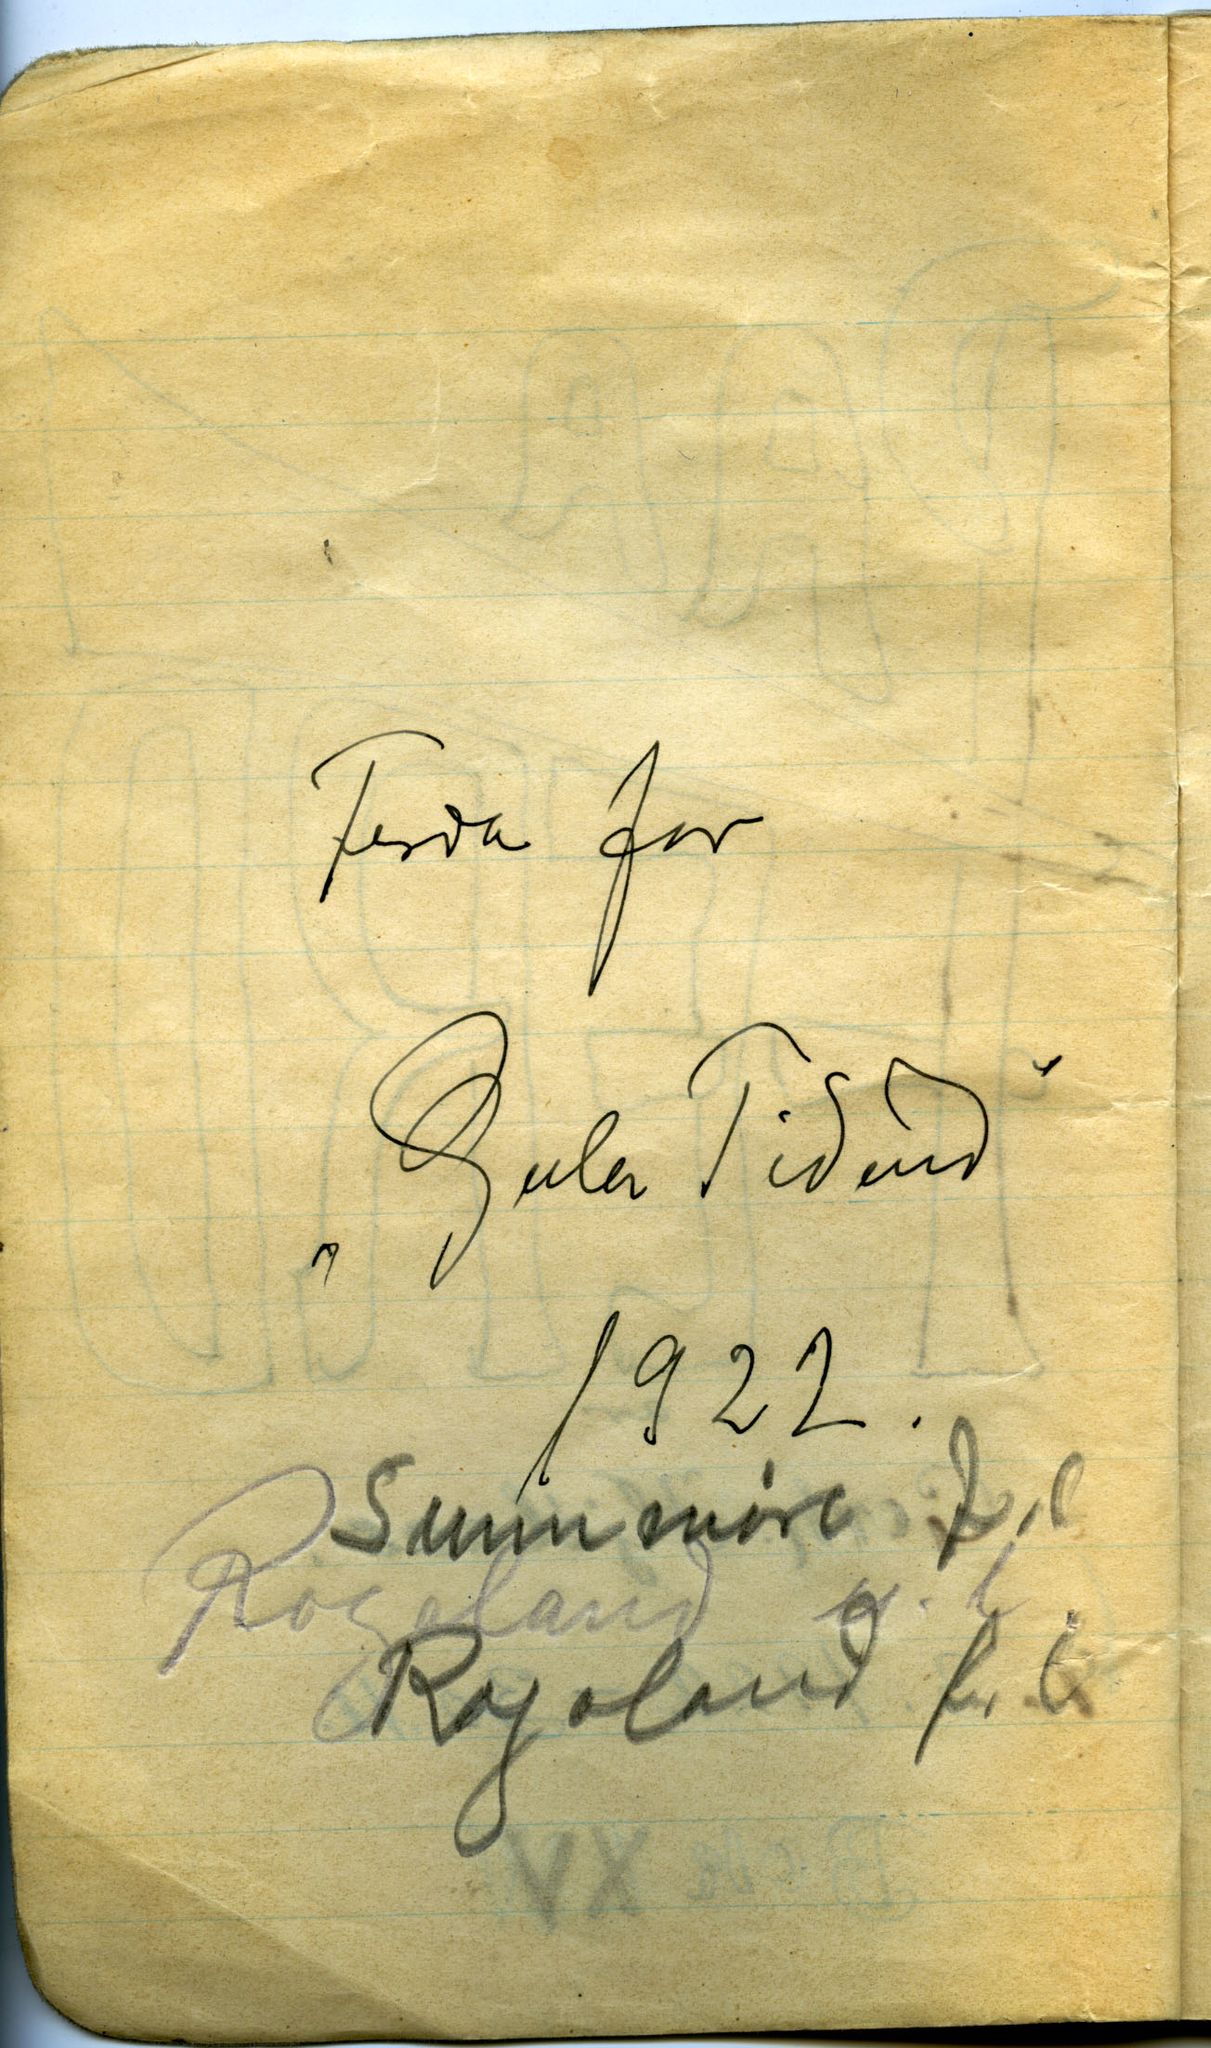 Ferda for
„Gula Tidend“
1922.
Sunnmöre f. l
Rogaland u. l.
Rogaland fr. l.
Bok XV